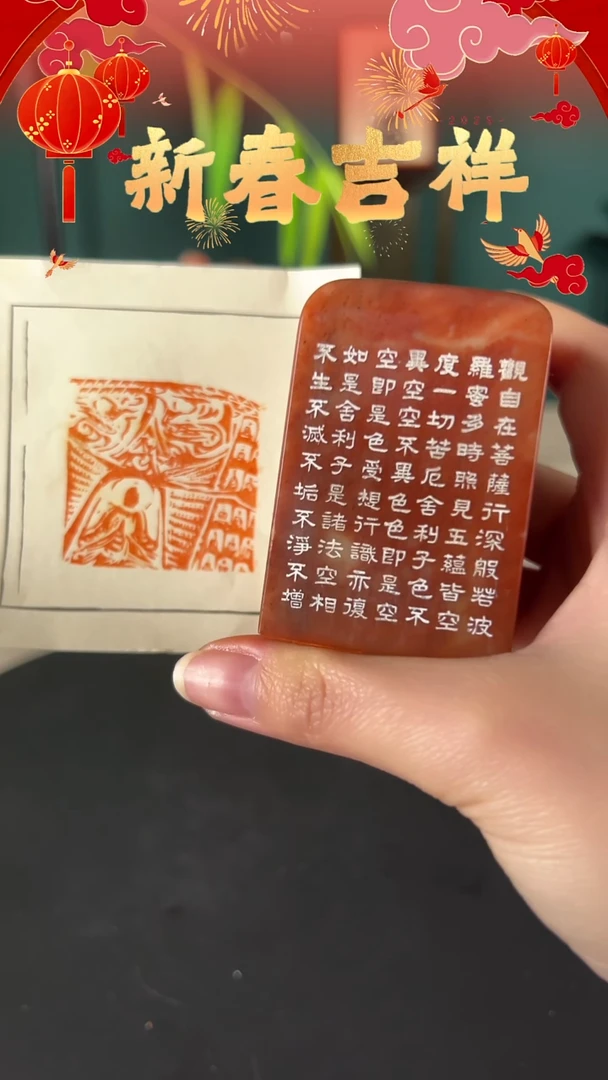 2025
新春吉祥
觀自在菩薩行深般若波
羅蜜多時照見五蘊皆空
度一切苦厄舍利子色不
異空空不異色色即是空
空即是色受想行識亦復
如是舍利子是諸法空相
不生不滅不垢不淨不增